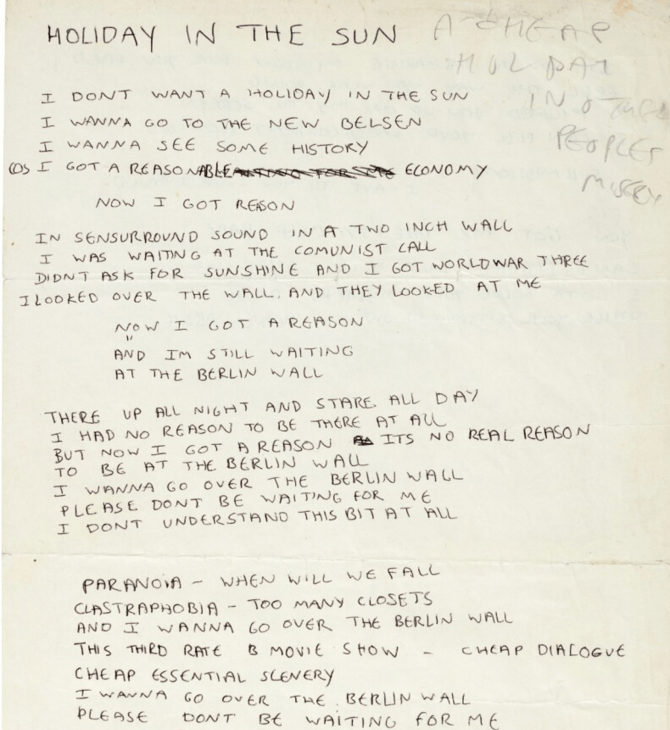 HOLIDAY IN THE SUN
A CHEAP
HOLIDAY
IN OTHER
PEOPLES
MISERY
I DONT WANT A HOLIDAY IN THE SUN
I WANNA GO TO THE NEW BELSEN
I WANNA SEE SOME HISTORY
COS I GOT A REASONABLE ECONOMY
NOW I GOT REASON
IN SENSURROUND SOUND IN A TWO INCH WALL
I WAS WAITING AT THE COMUNIST CALL
DIDNT ASK FOR SUNSHINE AND I GOT WORLDWAR THREE
I LOOKED OVER THE WALL. AND THEY LOOKED AT ME
NOW I GOT A REASON
" AND IM STILL WAITING
AT THE BERLIN WALL
THERE UP ALL NIGHT AND STARE ALL DAY
I HAD NO REASON TO BE THERE AT ALL
BUT NOW I GOT A REASON ITS NO REAL REASON
TO BE AT THE BERLIN WALL
I WANNA GO OVER THE BERLIN WALL
PLEASE DONT BE WAITING FOR ME
I DONT UNDERSTAND THIS BIT AT ALL
PARANOIA - WHEN WILL WE FALL
CLASTRAPHOBIA - TOO MANY CLOSETS
AND I WANNA GO OVER THE BERLIN WALL
THIS THIRD RATE B MOVIE SHOW - CHEAP DIALOGUE
CHEAP ESSENTIAL SCENERY
I WANNA GO OVER THE BERLIN WALL
PLEASE DONT BE WAITING FOR ME